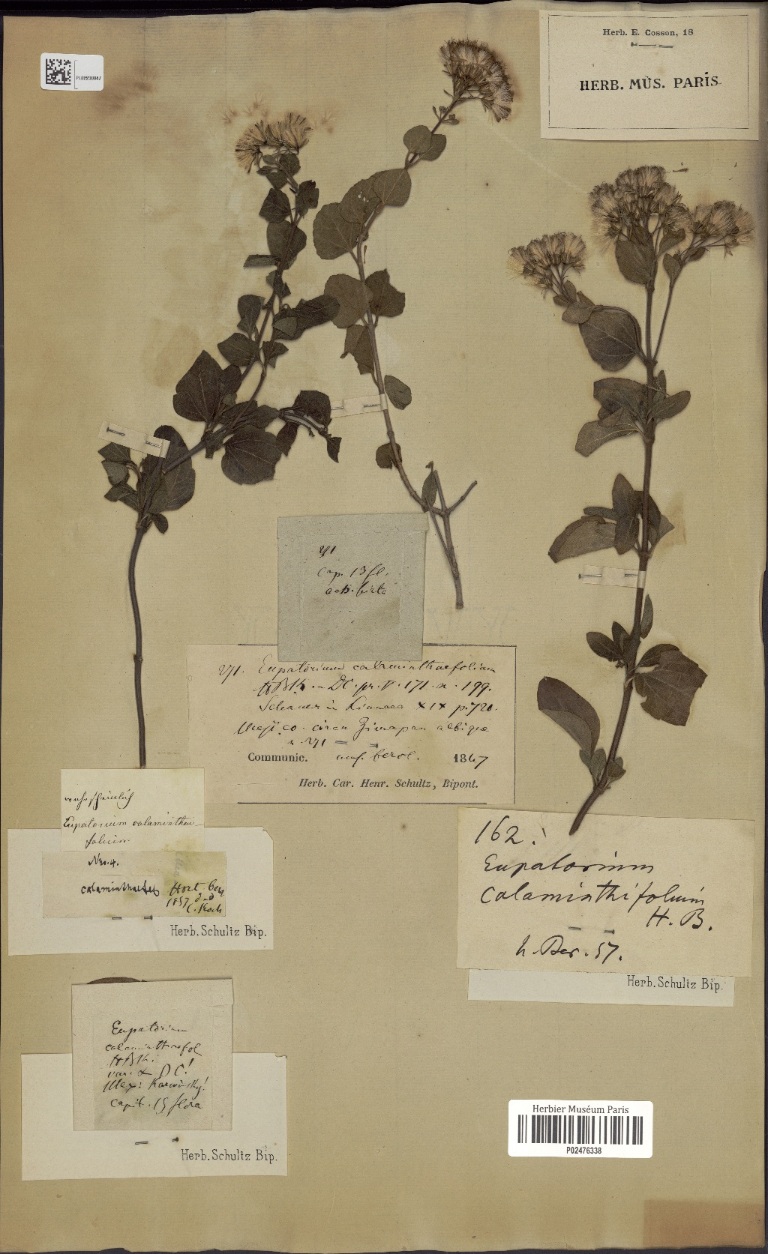 Herb. E. Cosson, 18
HERB. MUS. PARIS.
271
cap. 13 fl.
271. Eupatorium calaminthaefolium
HBK. DC. pr. V. 171. n. 199.
Schauer in Linnaea XIX p. 720.
Mejico circa Zimapan
n. 271
Communic. berol. 1847
Herb. Car. Henr. Schultz, Bipont.
wahrscheinlich
Eupatorium calaminthae-
folium
calaminthaefol Hort. Ber.
1857
Herb. Schultz Bip.
162!
Eupatorium
calaminthifolium
H. B.
h. Ber. 57.
Herb. Schultz Bip.
Eupatorium
calaminthaefol
HBK!
var. α DC!
Mexi: Karwinsky!
capit. 15 flora
Herb. Schultz Bip.
Herbier Muséum Paris
P02476338